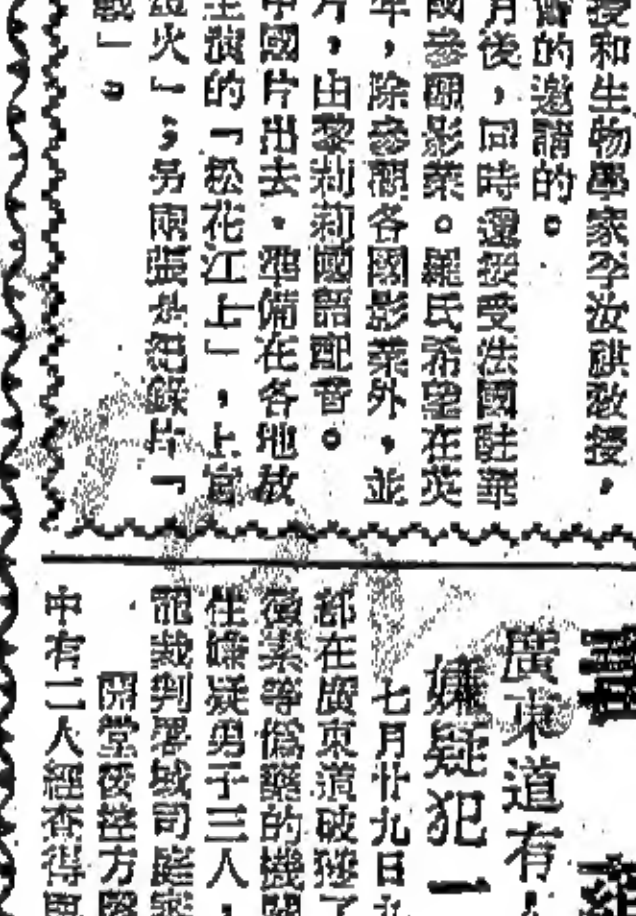 授和生物學家李汝祺教授，
會的邀請的。
月後，同時還接受法國駐華
國參觀影業。羅氏希望在英
年，除參觀各國影業外，並
片，由黎莉莉國語配音。
中國片出去，準備在各地放
主演的「松花江上」，上官
火」；另兩張是紀錄片「
戰」。
廣東道有
嫌疑犯一
七月廿九日
都在廣東道破獲了
等偽藥的機關
住嫌疑男子三人，
龍裁判署域司庭
開堂後控方
中有二人經查得